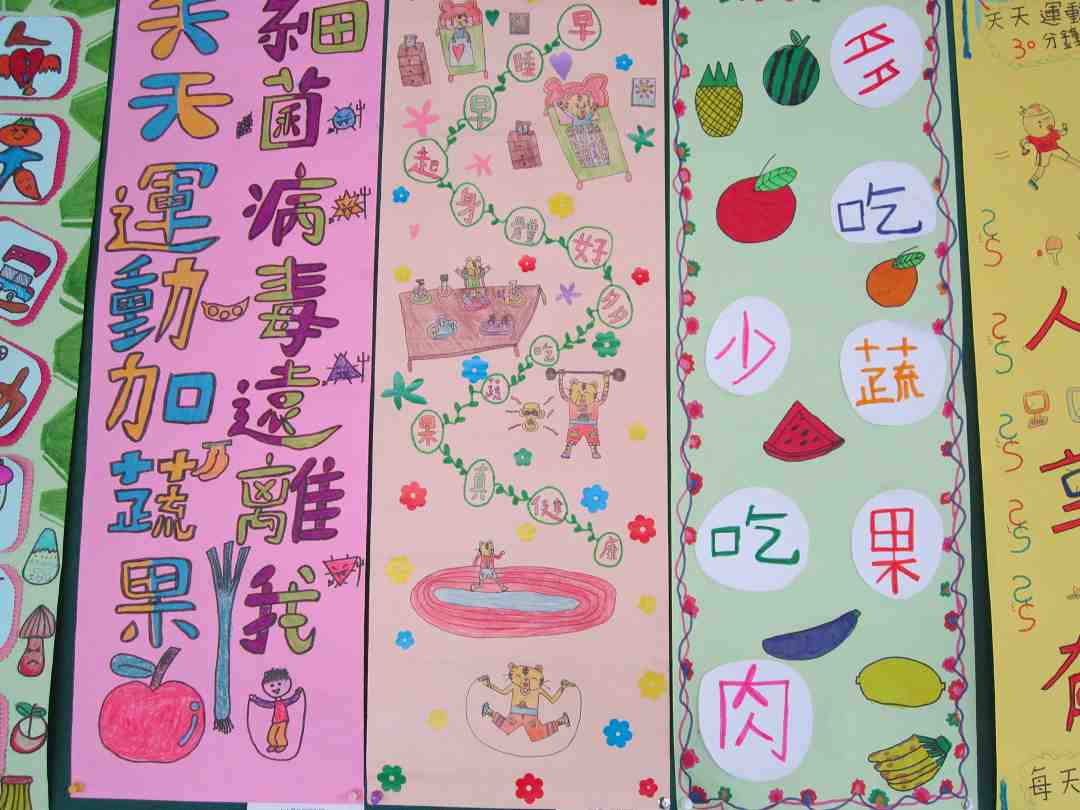 天天運動加蔬果
細菌病毒遠離我
早睡早起身體好多吃蔬果真健康
多吃蔬果
少吃肉
天天運動
30分鐘
人
每天